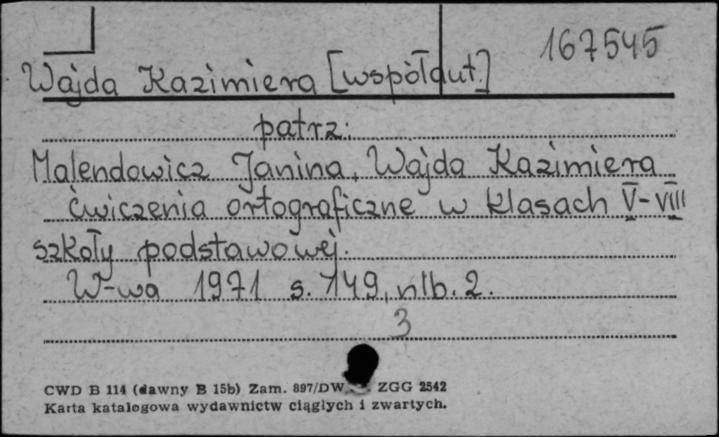 167545
Wajda Kazimiera [współaut.]
patrz:
Malendowicz Janina, Wajda Kazimiera
Ćwiczenia ortograficzne w klasach V-VIII
szkoły podstawowej.
W-wa 1971 s. 149, nlb. 2.
3
CWD B 114 (dawny B 15b) Zam. 897/DW ZGG 2542
Karta katalogowa wydawnictw ciągłych i zwartych.